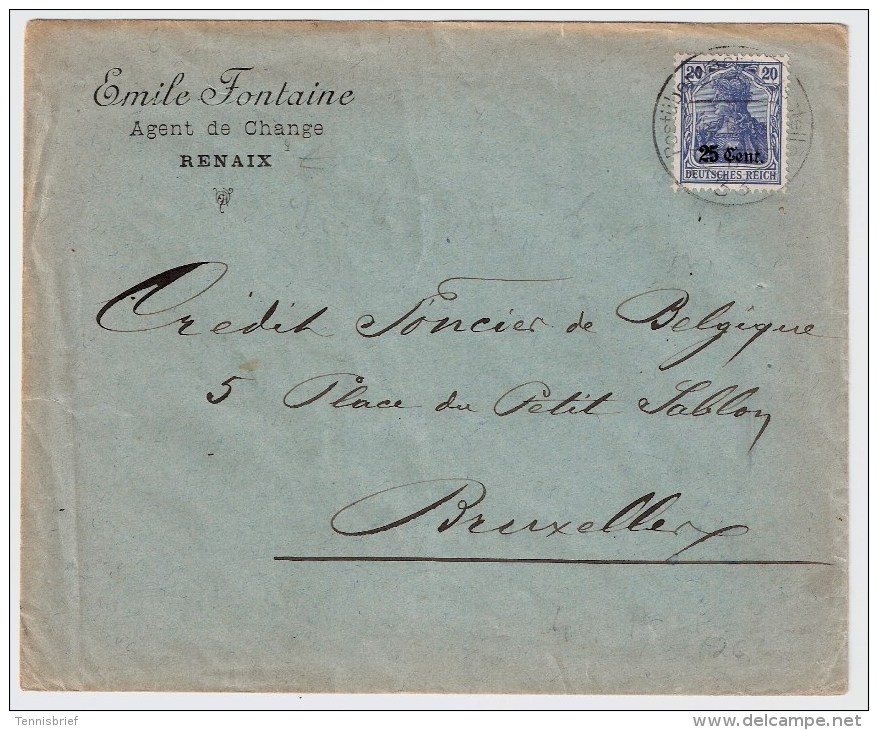 Emile Fontaine
Agent de Change
RENAIX
20 20
25 Cent.
DEUTSCHES REICH
33
Crédit Foncier de Belgique
5 Place du Petit Sablon
Bruxelles
Tennisbrief
www.delcampe.net